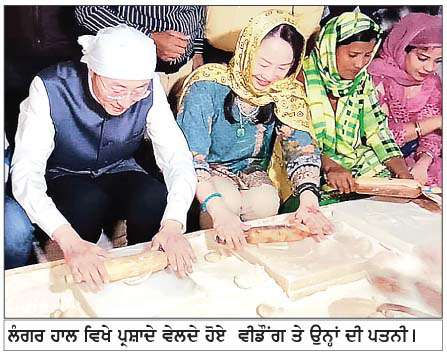 ਲੰਗਰ ਹਾਲ ਵਿਖੇ ਪ੍ਰਸ਼ਾਦੇ ਵੇਲਦੇ ਹੋਏ ਵੀਡੌਂਗ ਤੇ ਉਨ੍ਹਾਂ ਦੀ ਪਤਨੀ।